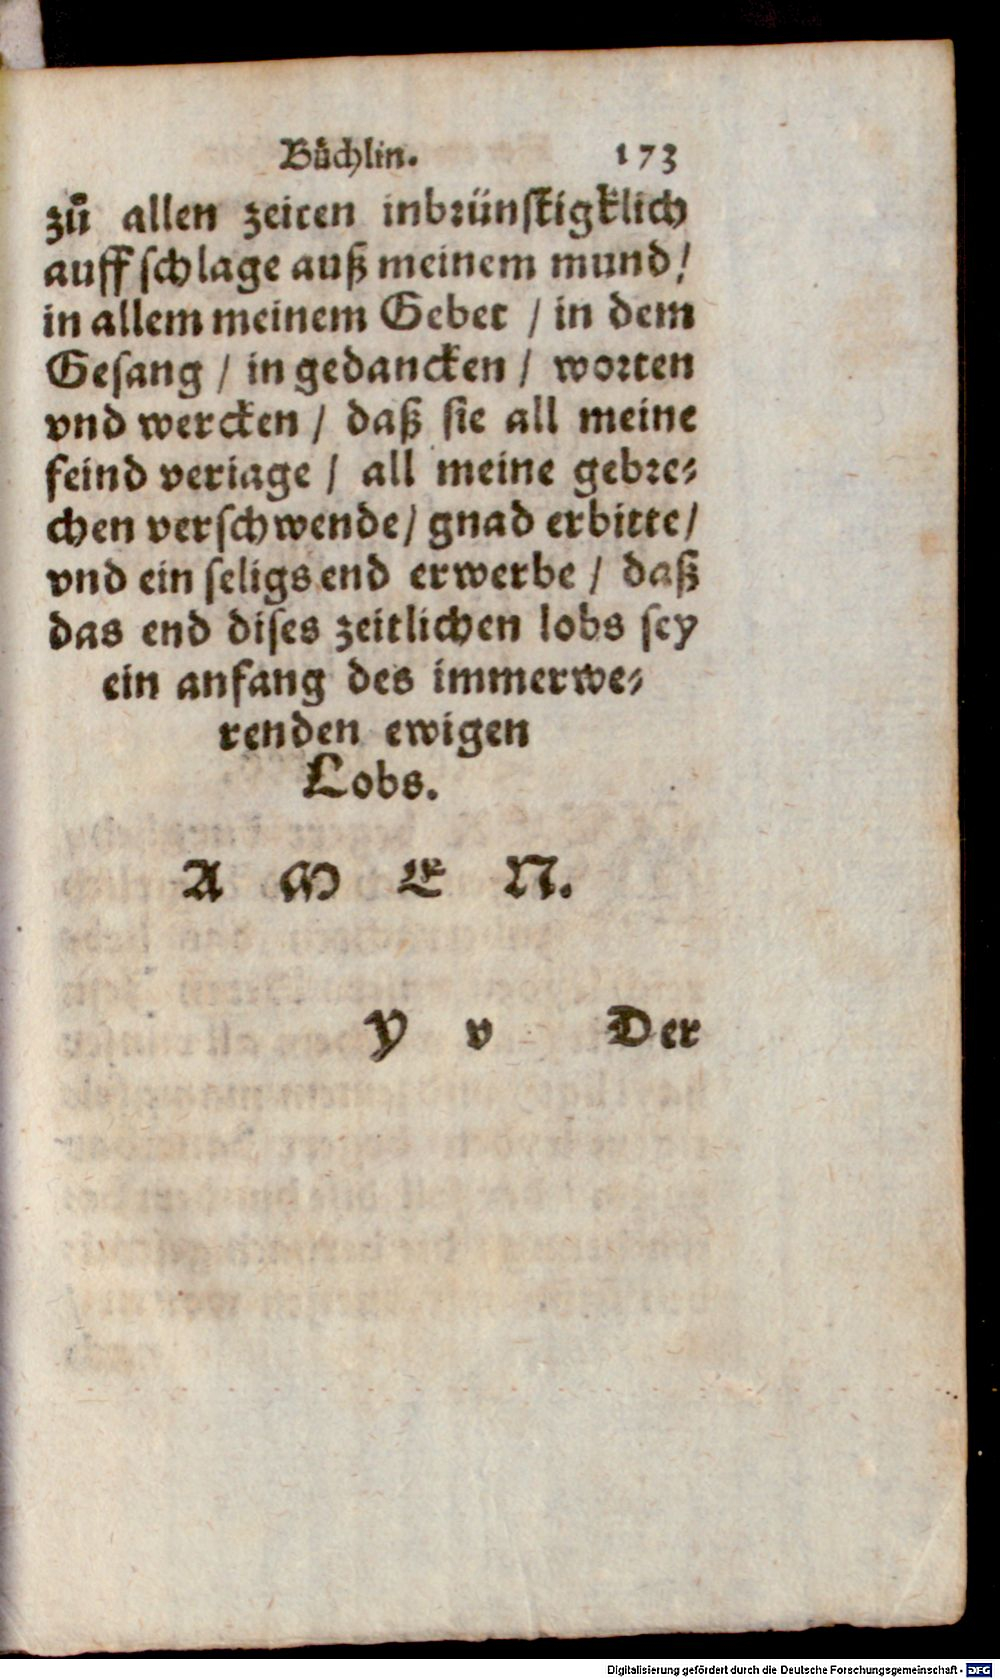 Bůchlin. 173
zů allen zeiten inbrünſtigklich
auff ſchlage auß meinem mund /
in allem meinem Gebet / in dem
Geſang / in gedancken / worten
vnd wercken / daß ſie all meine
feind veriage / all meine gebre⸗
chen verſchwende / gnad erbitte /
vnd ein ſeligs end erwerbe / daß
das end diſes zeitlichen lobs ſey
ein anfang des immerwe⸗
renden ewigen
Lobs.
A M E N.
Y v Der
Digitalisierung gefördert durch die Deutsche Forschungsgemeinschaft - DFG